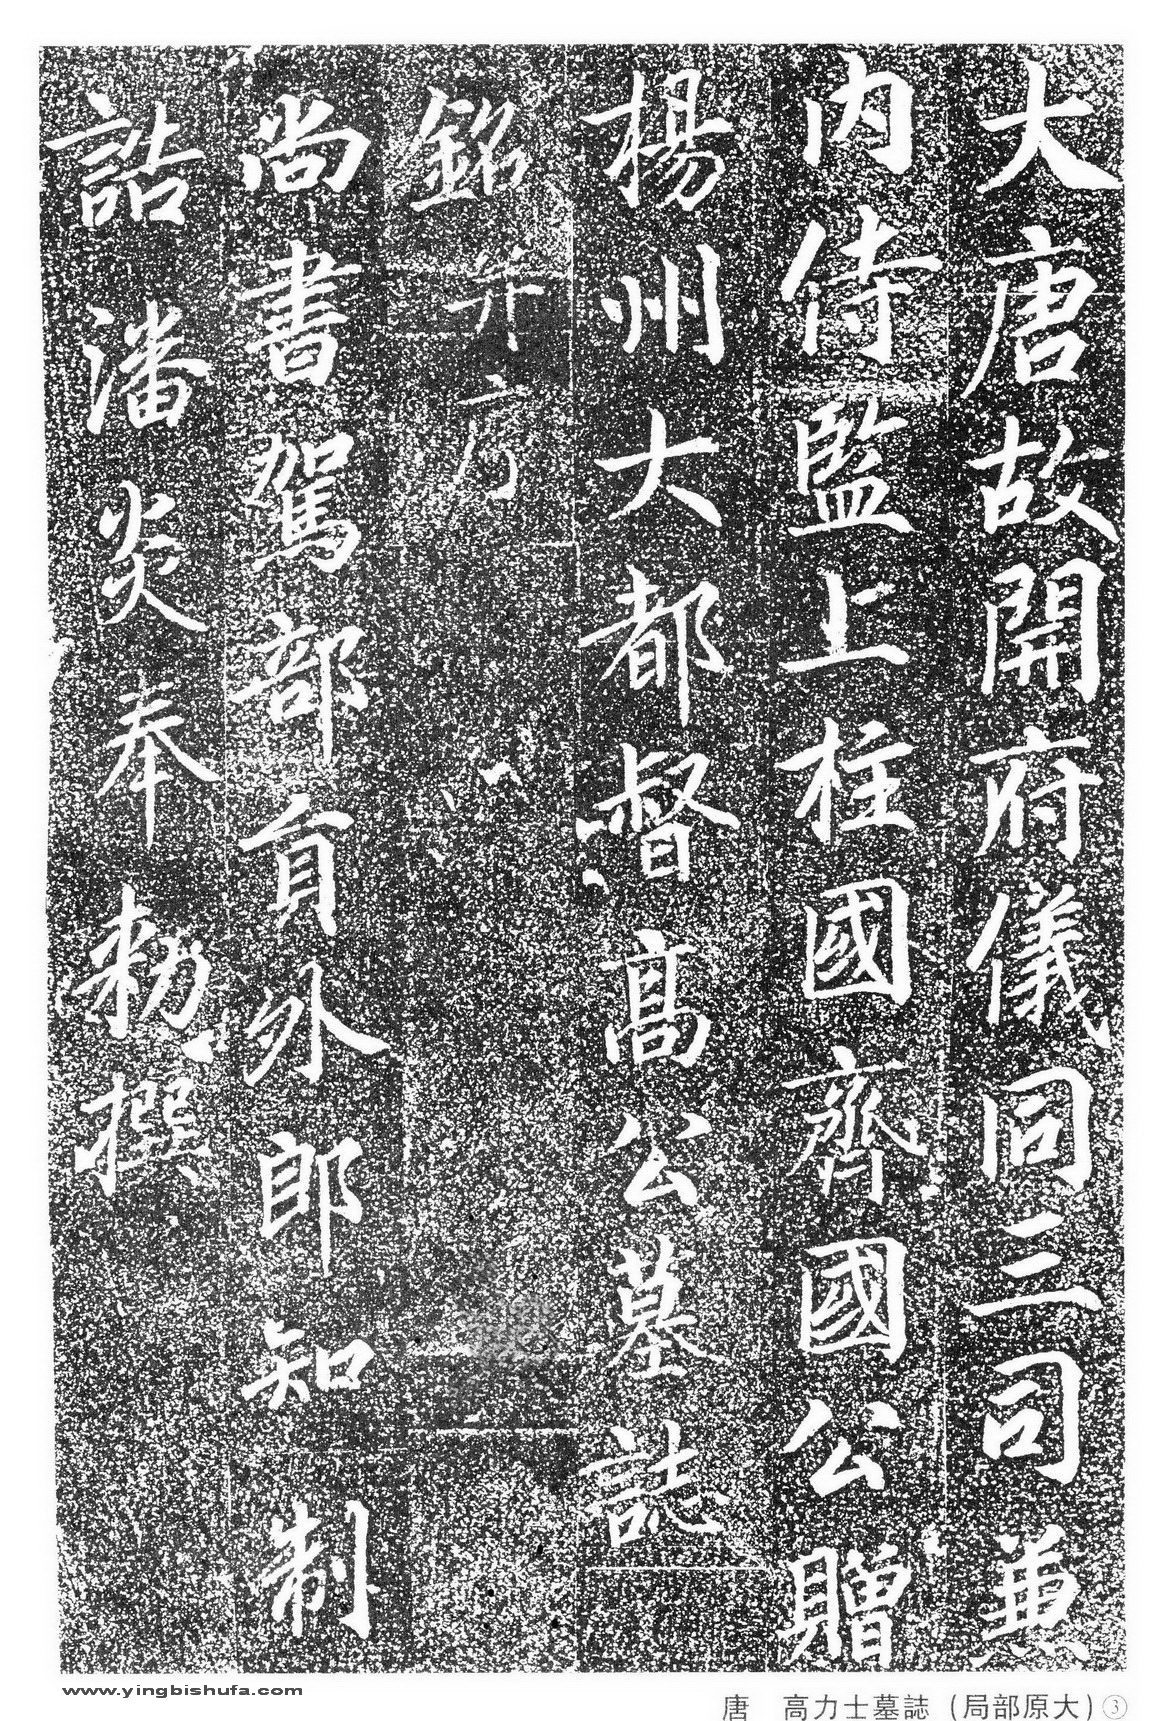 大唐故開府儀同三司兼
内侍監上柱國齊國公贈
楊州大都督高公墓誌
銘并序
尚書駕部貟外郎知制
誥潘炎奉勑撰
www.yingbishufa.com
唐 高力士墓誌（局部原大）③